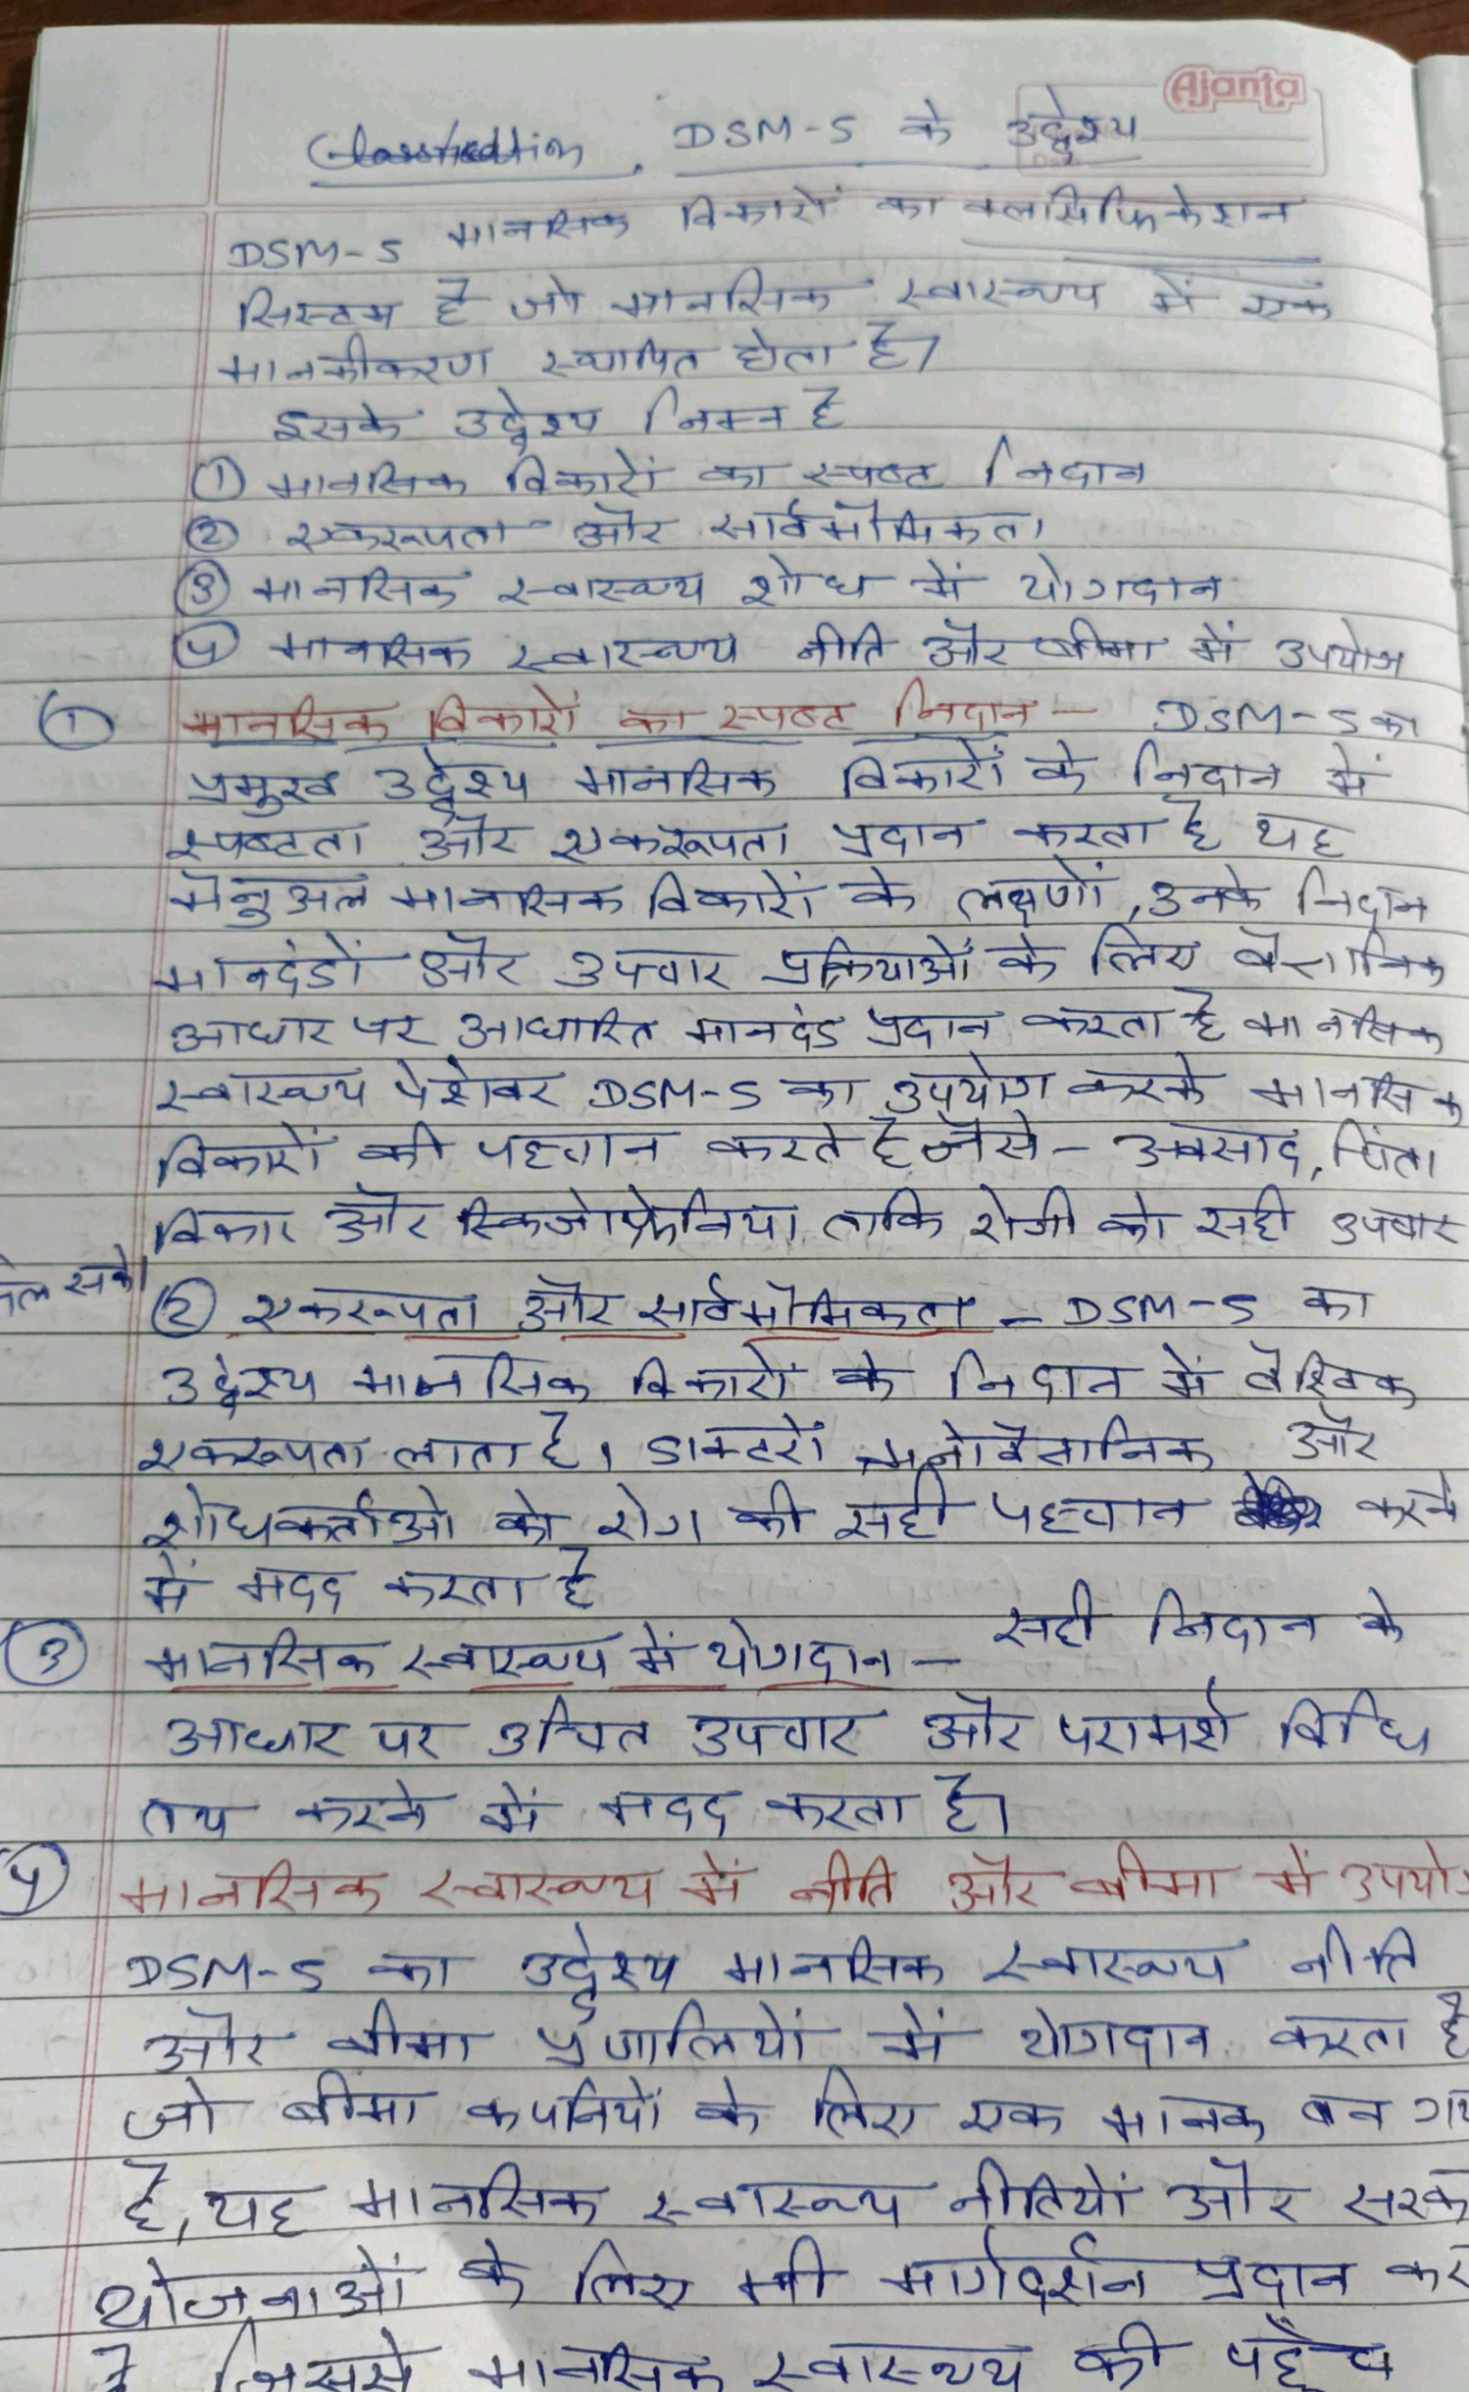 Ajanta
Classification DSM-5 के उद्देश्य
DSM-5 मानसिक विकारों का क्लासिफिकेशन
सिस्टम है जो मानसिक स्वास्थ्य में एक
मानकीकरण स्थापित होता है।
इसके उद्देश्य निम्न है
① मानसिक विकारों का स्पष्ट निदान
② एकरूपता और सार्वभौमिकता
③ मानसिक स्वास्थ्य शोध में योगदान
④ मानसिक स्वास्थ्य नीति और बीमा में उपयोग
① मानसिक विकारों का स्पष्ट निदान - DSM-5 का
प्रमुख उद्देश्य मानसिक विकारों के निदान में
स्पष्टता और एकरूपता प्रदान करता है यह
मैनुअल मानसिक विकारों के लक्षणों, उनके निदान
मानदंडों और उपचार प्रक्रियाओं के लिए वैज्ञानिक
आधार पर आधारित मानदंड प्रदान करता है मानसिक
स्वास्थ्य पेशेवर DSM-5 का उपयोग करके मानसिक
विकारों की पहचान करते है जैसे - अवसाद, चिंता
विकार और स्किजोफ्रेनिया ताकि रोगी को सही उपचार
सके।
② एकरूपता और सार्वभौमिकता - DSM-5 का
उद्देश्य मानसिक विकारों के निदान में वैश्विक
एकरूपता लाता है। डाक्टरों मनोवैज्ञानिक और
शोधकर्ताओ को रोग की सही पहचान करने
में मदद करता है
③ मानसिक स्वास्थ्य में योगदान - सही निदान के
आधार पर उचित उपचार और परामर्श विधि
तय करने में मदद करता है।
④ मानसिक स्वास्थ्य में नीति और बीमा में उपयो
DSM-5 का उद्देश्य मानसिक स्वास्थ्य नीति
और बीमा प्रणालियों में योगदान करता है
जो बीमा कपनियों के लिए एक मानक बन गय
है, यह मानसिक स्वास्थ्य नीतियों और सरक
योजनाओं के लिए भी मार्गदर्शन प्रदान कर
है जिससे मानसिक स्वास्थ्य की पहुँच